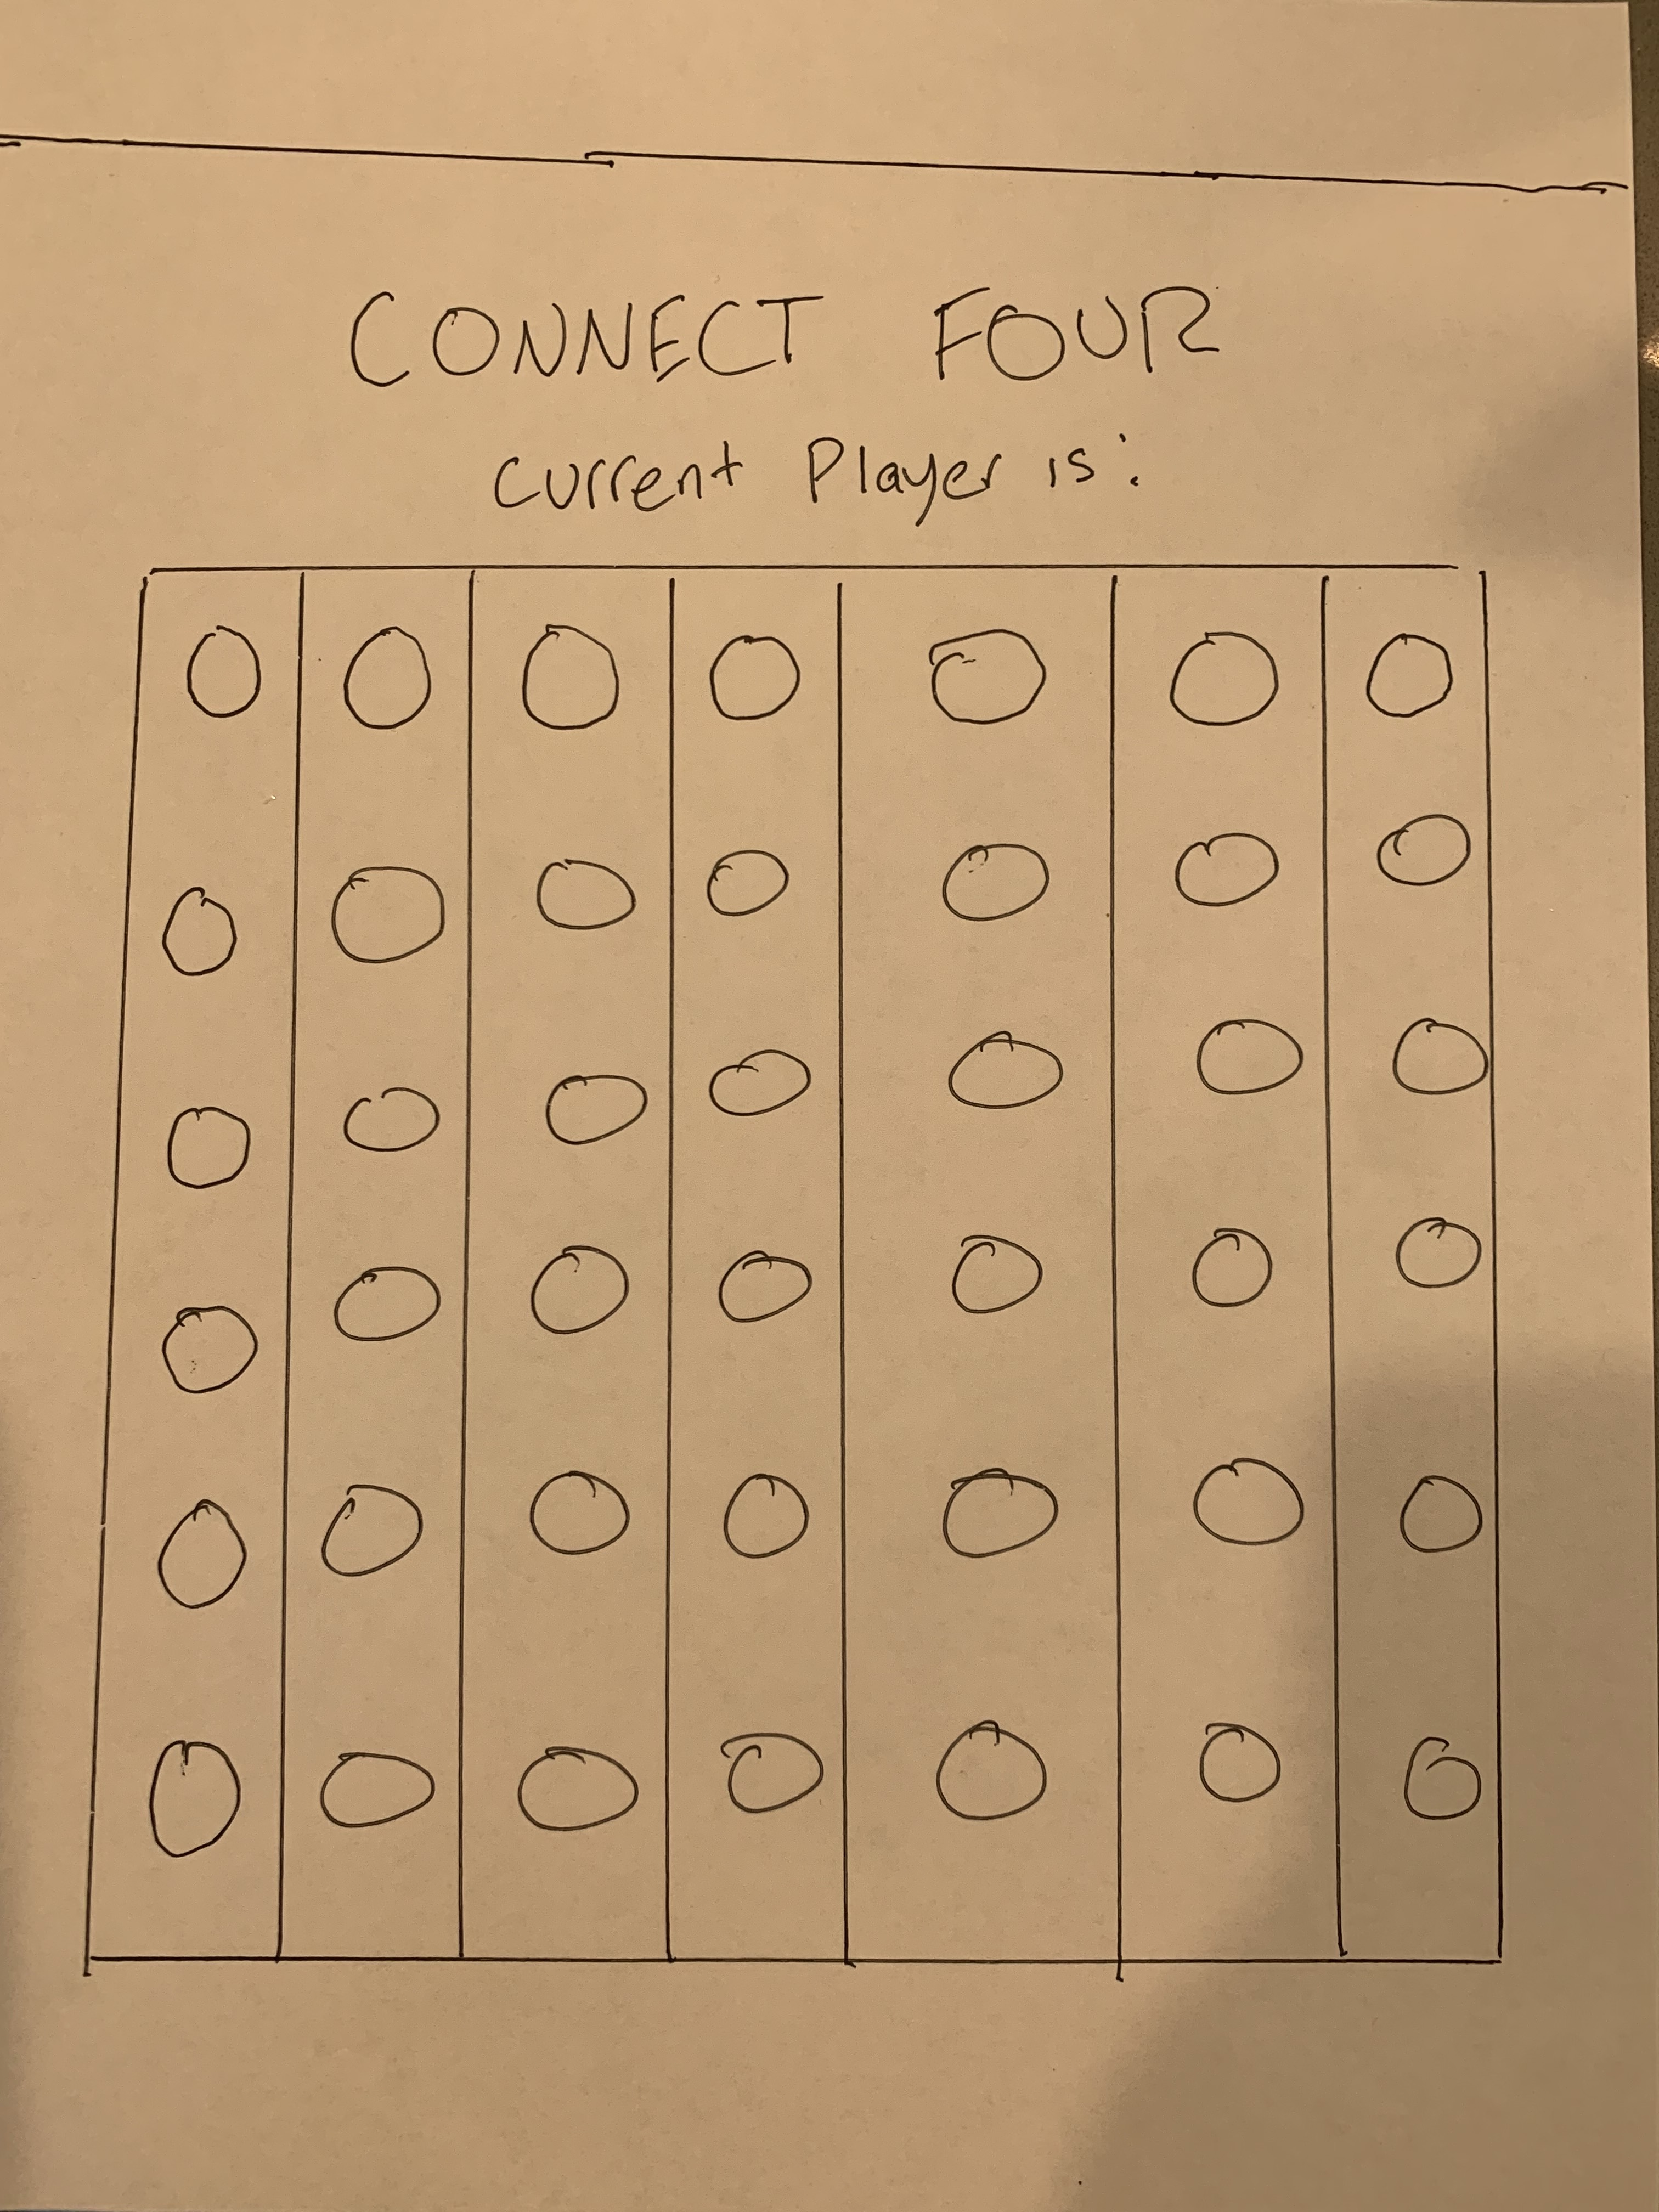 CONNECT FOUR
Current Player is: